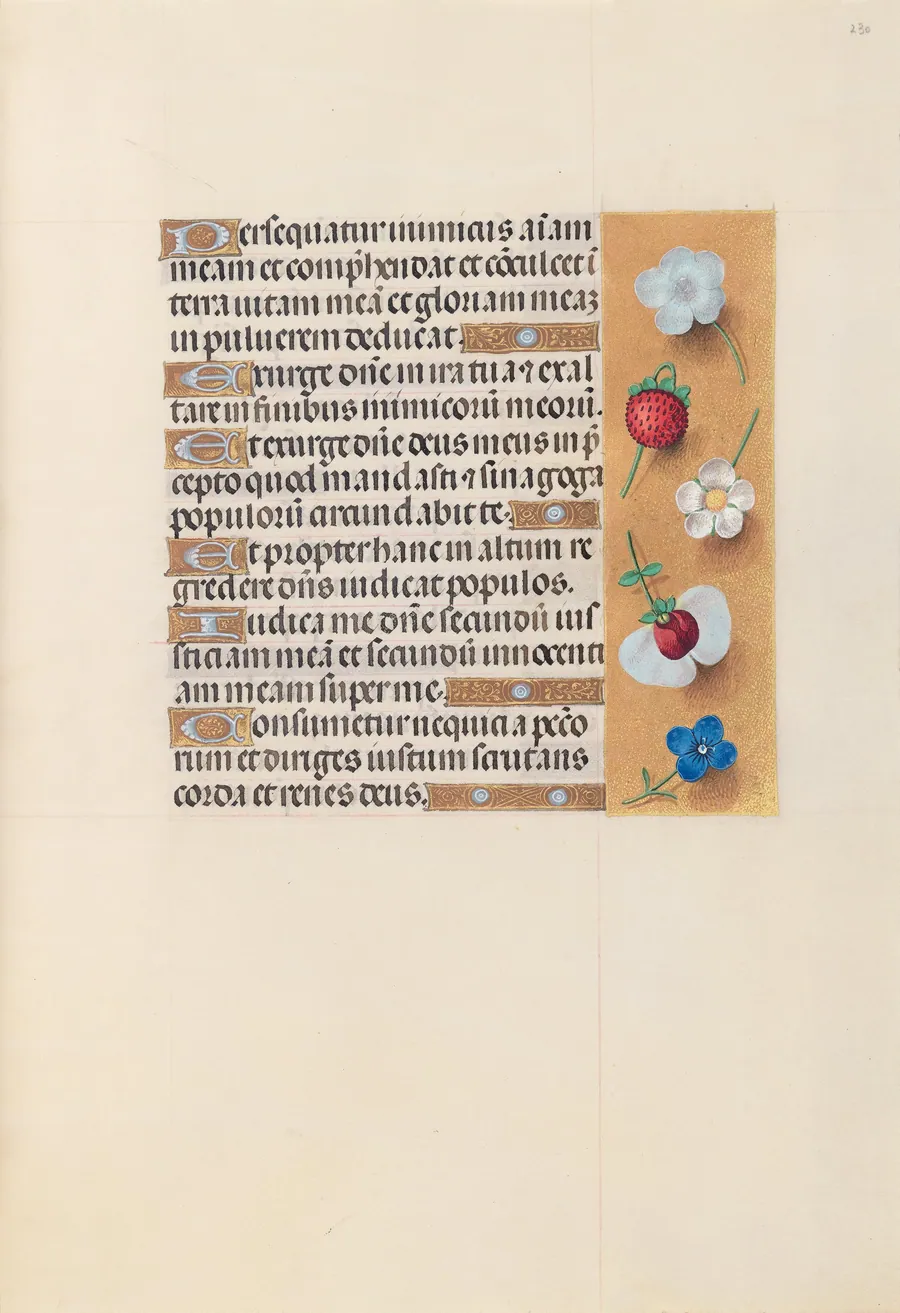 230
Persequatur inimicus aīam
meam et comp̄hendat et cōculcet ī
terra uitam meā et gloriam meaʒ
in puluerem deducat.
Exurge dn̄e in ira tua ⁊ exal
tare in finibus inimicorū meorū.
Et exurge dn̄e deus meus in p̄
cepto quod mandasti ⁊ sinagoga
populorū circundabit te.
Et propter hanc in altum re
gredere dn̄s iudicat populos.
Iudica me dn̄e secundū ius
ticiam meā et secundū innocenti
am meam super me.
Consumetur nequicia pēcō
rum et diriges iustum scrutans
corda et renes deus.